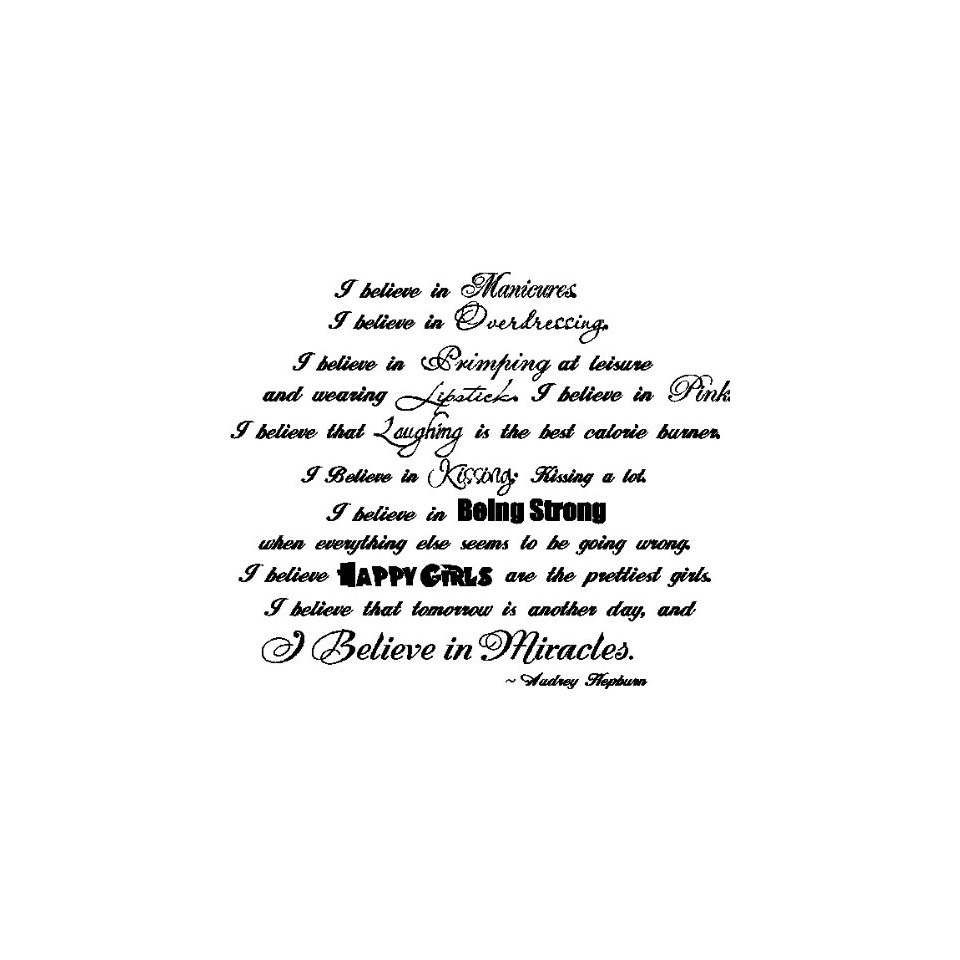 I believe in Manicures.
I believe in Overdressing.
I believe in Primping at leisure
and wearing Lipstick. I believe in Pink.
I believe that Laughing is the best calorie burner.
I Believe in Kissing; Kissing a lot.
I believe in Being Strong
when everything else seems to be going wrong.
I believe HAPPY GIRLS are the prettiest girls.
I believe that tomorrow is another day, and
I Believe in Miracles.
~ Audrey Hepburn